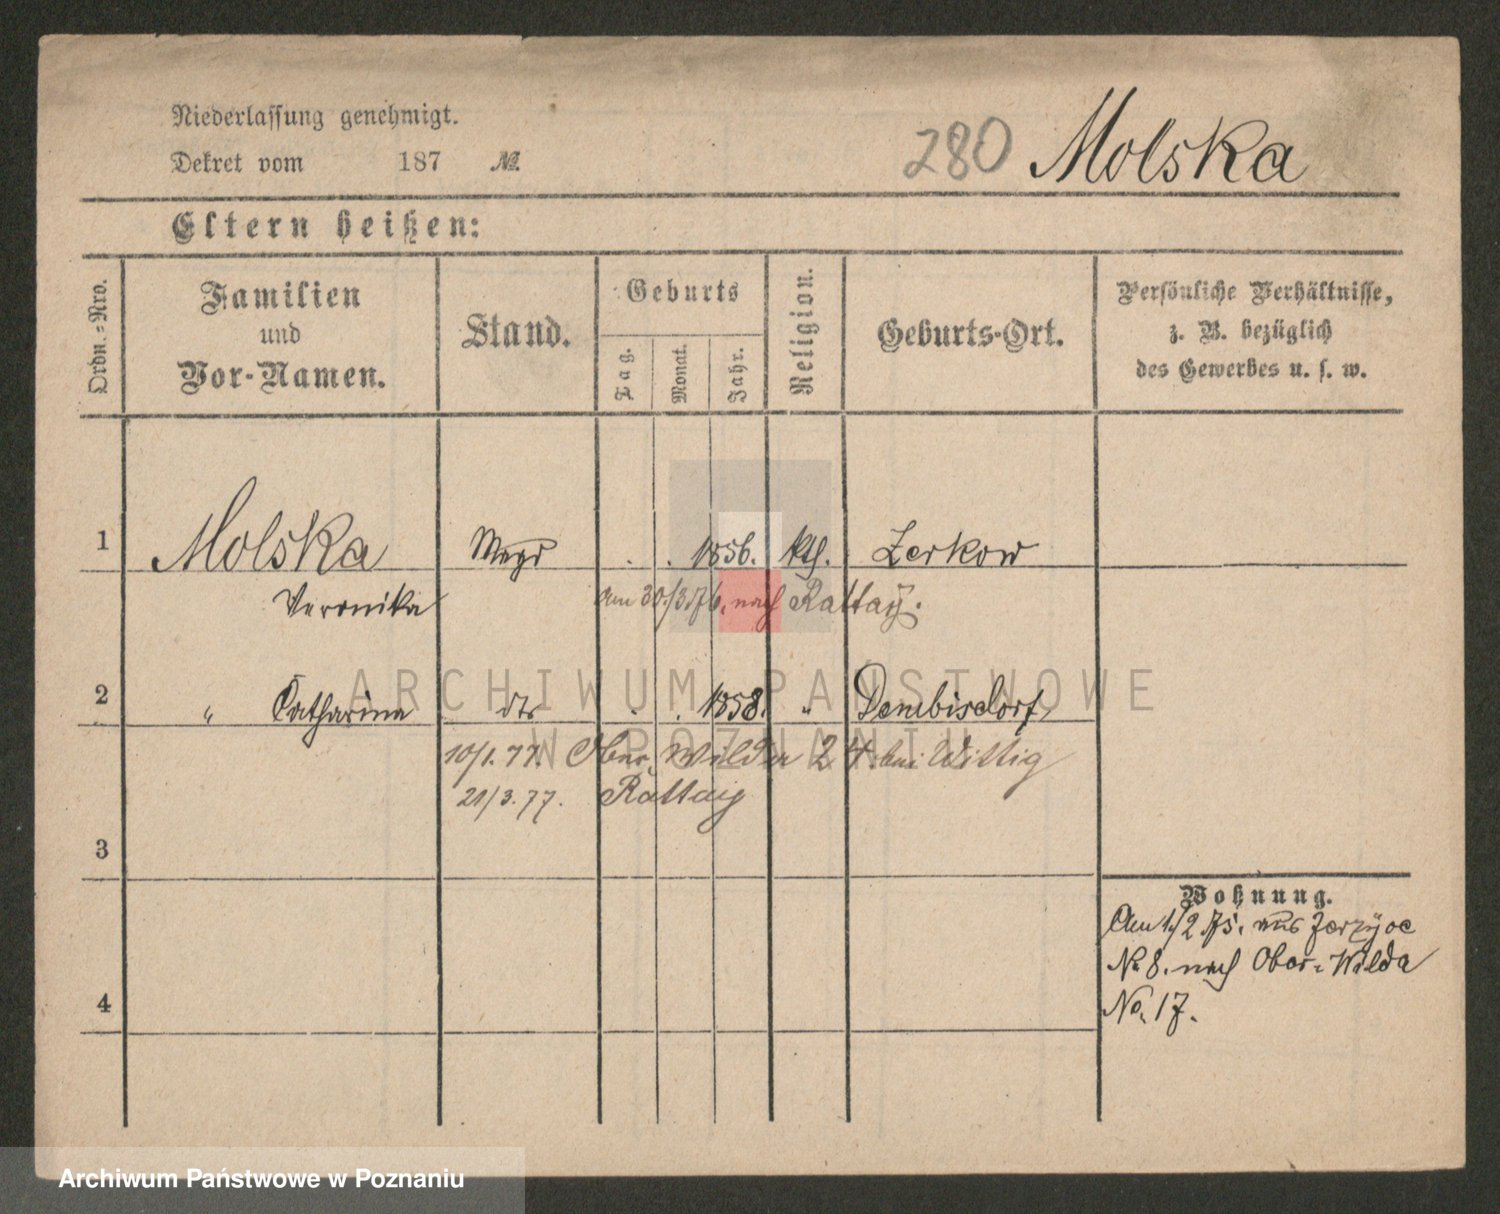 Niederlassung genehmigt.
Dekret vom 187 №
280 Molska
Eltern heißen:
Ordn.-Nro.
Familien und Vor-Namen.
Stand.
Geburts
Tag.
Monat.
Jahr.
Religion.
Geburts-Ort.
Persönliche Verhältnisse,
z. B. bezüglich
des Gewerbes u. s. w.
1 Molska Magd . . 1856. kth. Zerkow
Veronika am 30/3.76. nach Rattay.
2 " Catharina dto . . 1858. " Dembisdorf
10/1.77. Ober Wilda 24 bei Wittig
21/3.77. Rattaig
3
Wohnung.
Am 1/2 75. aus Jerzyce
No 8. nach Ober-Wilda
No. 17.
4
ARCHIWUM PAŃSTWOWE
W POZNANIU
Archiwum Państwowe w Poznaniu